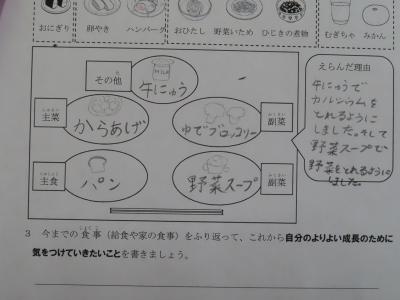 おにぎり 卵やき ハンバーグ おひたし 野菜いため ひじきの煮物 むぎちゃ みかん
その他
MILK
牛にゅう
主菜
からあげ
ゆでブロッコリー
副菜
主食
パン
野菜スープ
副菜
えらんだ理由
牛にゅうで
カルシウムを
とれるように
しました。そして
野菜スープで
野菜をとれるように
しました。
3 今までの食事(給食や家の食事)をふり返って、これから自分のよりよい成長のために
気をつけていきたいことを書きましょう。